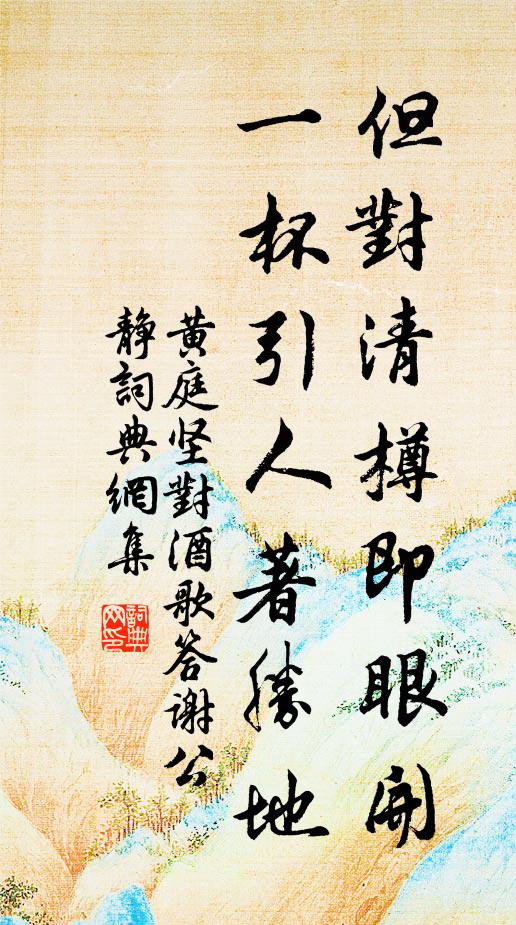 但對清樽即眼開
一杯引人著勝地
黃庭坚對酒歌答谢公
靜詞典網集
詞典